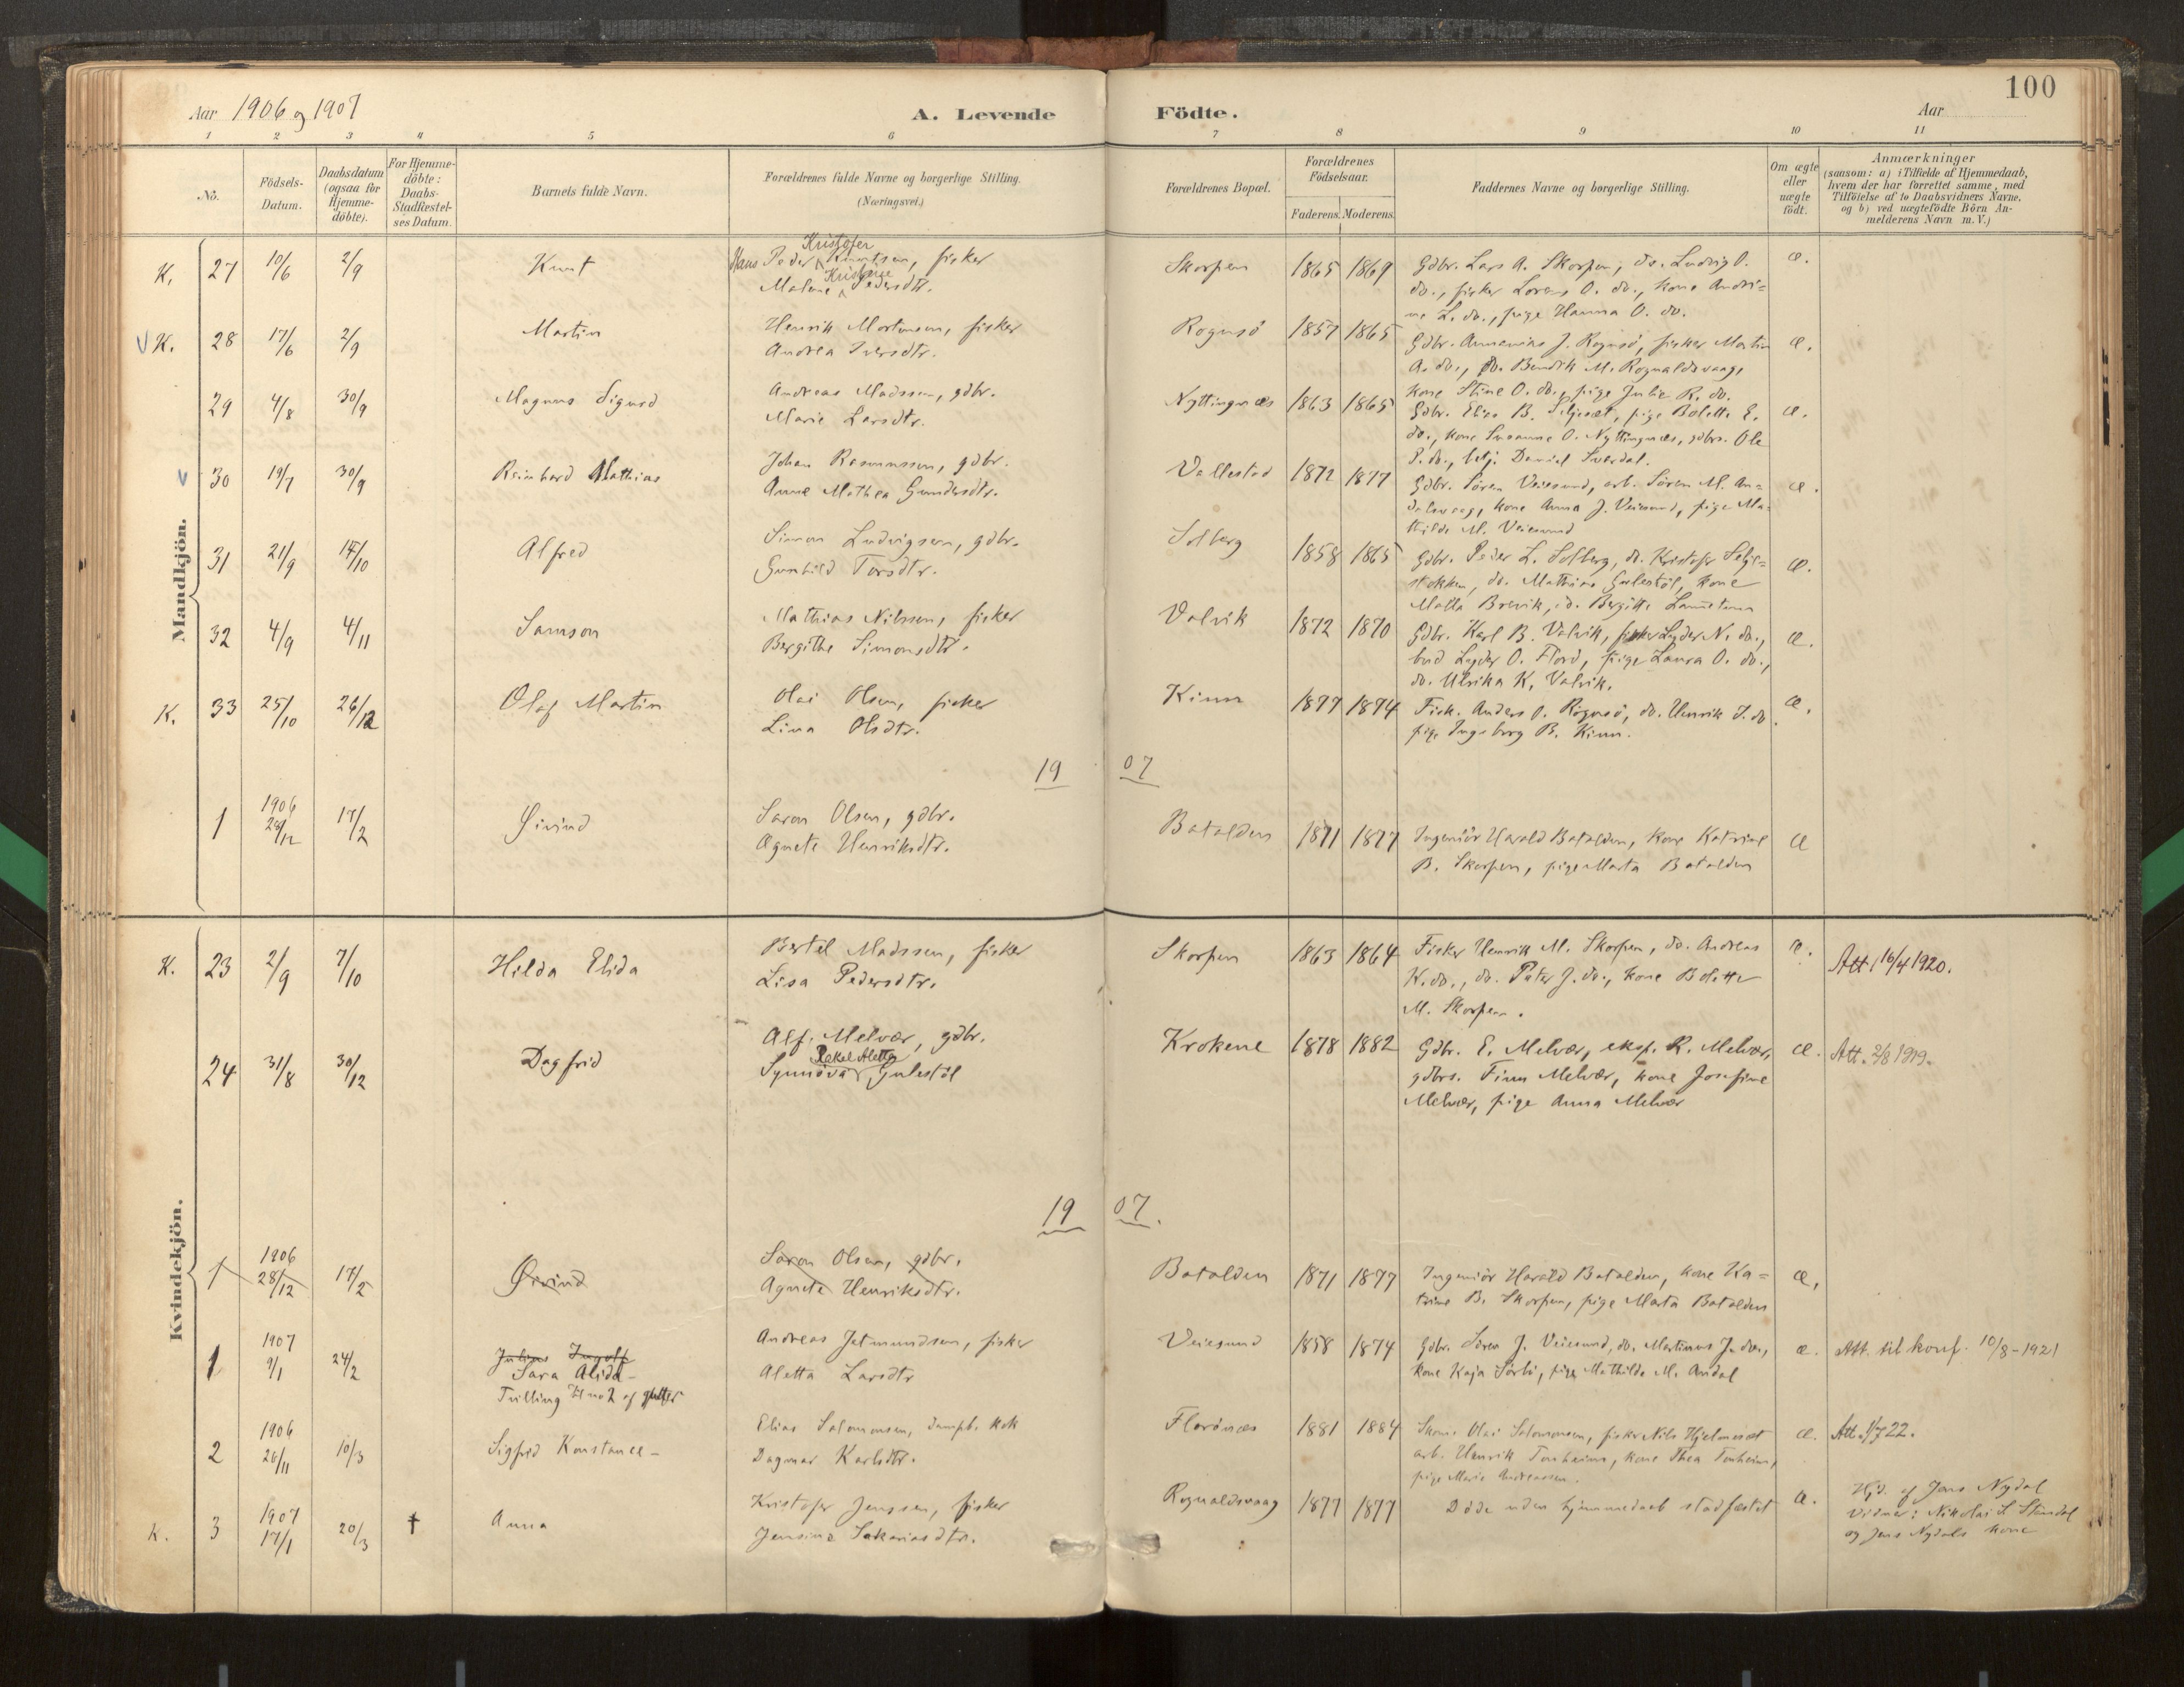 100
Aar 1906 og 1907
A. Levende Födte.
Aar
1 2 3 4 5 6 7 8 9 10 11
No.
Födsels-Datum.
Daabsdatum (ogsaa for Hjemme-döbte).
For Hjemme-döbte: Daabs-Stadfæstel-ses Datum.
Barnets fulde Navn.
Forældrenes fulde Navne og borgerlige Stilling. (Næringsvei.)
Forældrenes Bopæl.
Forældrenes Födselsaar.
Faderens. Moderens.
Faddernes Navne og borgerlige Stilling.
Om ægte eller uægte født.
Anmærkninger
(saasom: a) i Tilfælde af Hjemmedaab, hvem der har forrettet samme, med Tilföielse af to Daabsvidners Navne, og b) ved uægtefödte Börn An-melderens Navn m. V.)
Mandkjön.
K. 27 10/6 2/9 Knut
Hans Peder Kristofer Knutsen, fisker
Malene Kristine Pedersdtr.
Skorpen 1865 1869
Gdbr. Lars A. Skorpen, do. Ludvig O.
do., fisker Lorens O. do., kone Andri=
ne L. do., pige Hanna O. do.
æ.
V K. 28 17/6 2/9 Martin
Henrik Mortensen, fisker
Andrea Iversdtr.
Rognsö 1857 1865
Gdbr. Annanias J. Rognsö, fisker Martin
A. do., do. Bendik M. Rognaldsvaag,
kone Stine O. do., pige Julie R. do.
æ.
29 4/8 30/9 Magnus Sigurd
Andreas Madssen, gdbr.
Marie Larsdtr.
Nyttingnæs 1863 1865
Gdbr. Elias B. Seljeset, pige Bolette E.
do., kone Susanne O. Nyttingnæs, gdbrs. Ole
P. do., betj. Daniel Svardal.
æ.
V 30 19/7 30/9 Reinhard Mathias
Johan Rasmussen, gdbr.
Anne Mathea Gundersdtr.
Vallestad 1872 1877
Gdbr. Søren Veiesund, arb. Søren M. An=
dalsvaag, kone Anna J. Veiesund, pige Ma-
thilde M. Veiesund
æ.
31 21/9 14/10 Alfred
Simon Ludvigsen, gdbr.
Gunhild Torsdtr.
Solberg 1858 1865
Gdbr. Peder L. Solberg, do. Kristofer Selje=
stokken, do. Mathias Gulestöl, kone
Malla Brevik, do. Bergitte
æ.
32 4/9 4/11 Samson
Mathias Nilssen, fisker
Bergithe Simonsdtr.
Valvik 1872 1870
Gdbr. Karl B. Valvik, fisker Lyder N. do.,
bud Lyder O. Florö, pige Laura O. do.,
do. Ulrika K. Valvik.
æ.
K. 33 25/10 26/12 Olaf Martin
Olai Olsen, fisker
Lina Olsdtr.
Kinn 1877 1874
Fisk. Anders O. Rognsö, do. Henrik J. do.
pige Ingeborg B. Kinn.
æ.
19 07
1 1906 28/12 17/2 Øivind
Saron Olsen, gdbr.
Agnete Henriksdtr.
Batalden 1871 1877
Ingeniör Harald Batalden, kone Katrine
B. Skorpen, pige Marta Batalden
æ
Kvindekjön.
K. 23 2/9 7/10 Hilda Elida
Bertel Madssen, fisker
Lisa Pedersdtr.
Skorpen 1863 1864
Fisker Henrik M. Skorpen, do. Andreas
K. do., do. Peter J. do., kone Bolette
M. Skorpen.
æ.
Att. 16/4 1920.
24 31/8 30/12 Dagfrid
Alf. Melvær, gdbr.
Synnöva Rakel Aletta Gulestöl
Krokene 1878 1882
Gdbr. E. Melvær, eksp. R. Melvær,
gdbrs. Finn Melvær, kone Josefine
Melvær, pige Anna Melvær
æ.
Att. 2/8 1919.
19 07.
1 1906 28/12 17/2 Øivind
Saron Olsen, gdbr.
Agnete Henriksdtr.
Batalden 1871 1877
Ingeniör Harald Batalden, kone Ka=
trine B. Skorpen, pige Marta Batalden
æ.
1 1907 9/1 24/2
Julius Ingolf
Sara Alida -
Tvilling til no 2 af gutter
Andreas Jetmundsen, fisker
Aletta Larsdtr
Veiesund 1858 1874
Gdbr. Sören J. Veiesund, do. Martinus J. do.,
kone Kaja Sörbö, pige Mathilde M. Andal
æ.
Att. til konf. 10/8-1921
2 1906 26/11 10/3 Sigfrid Konstance -
Elias Salomonsen, dampb. kok
Dagmar Karlsdtr.
Florönæs 1881 1884
Skom. Olai Salomonsen, fisker Nils Hjelmeset
arb. Henrik Tonheim, kone Thea Tonheim,
pige Marie Andreassen.
æ.
Att. 1/7 22.
K. 3 1907 17/1 20/3 † Anna
Kristofer Jenssen, fisker
Jensine Sakariasdtr.
Rognaldsvaag 1877 1877
Døde uden hjemmedaab stadfæstet
æ.
Hjd. af Jens Nydal
Vidner: Nikolai S. Stendal
og Jens Nydals kone